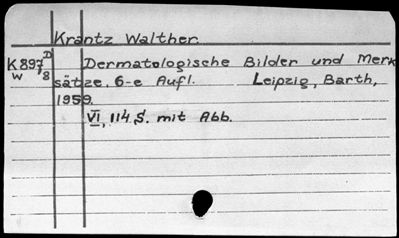 Krantz Walther.
K 897 D/8 Dermatologische Bilder und Merk
w sätze. 6-e Aufl. Leipzig, Barth,
1959.
VI, 114 S. mit Abb.